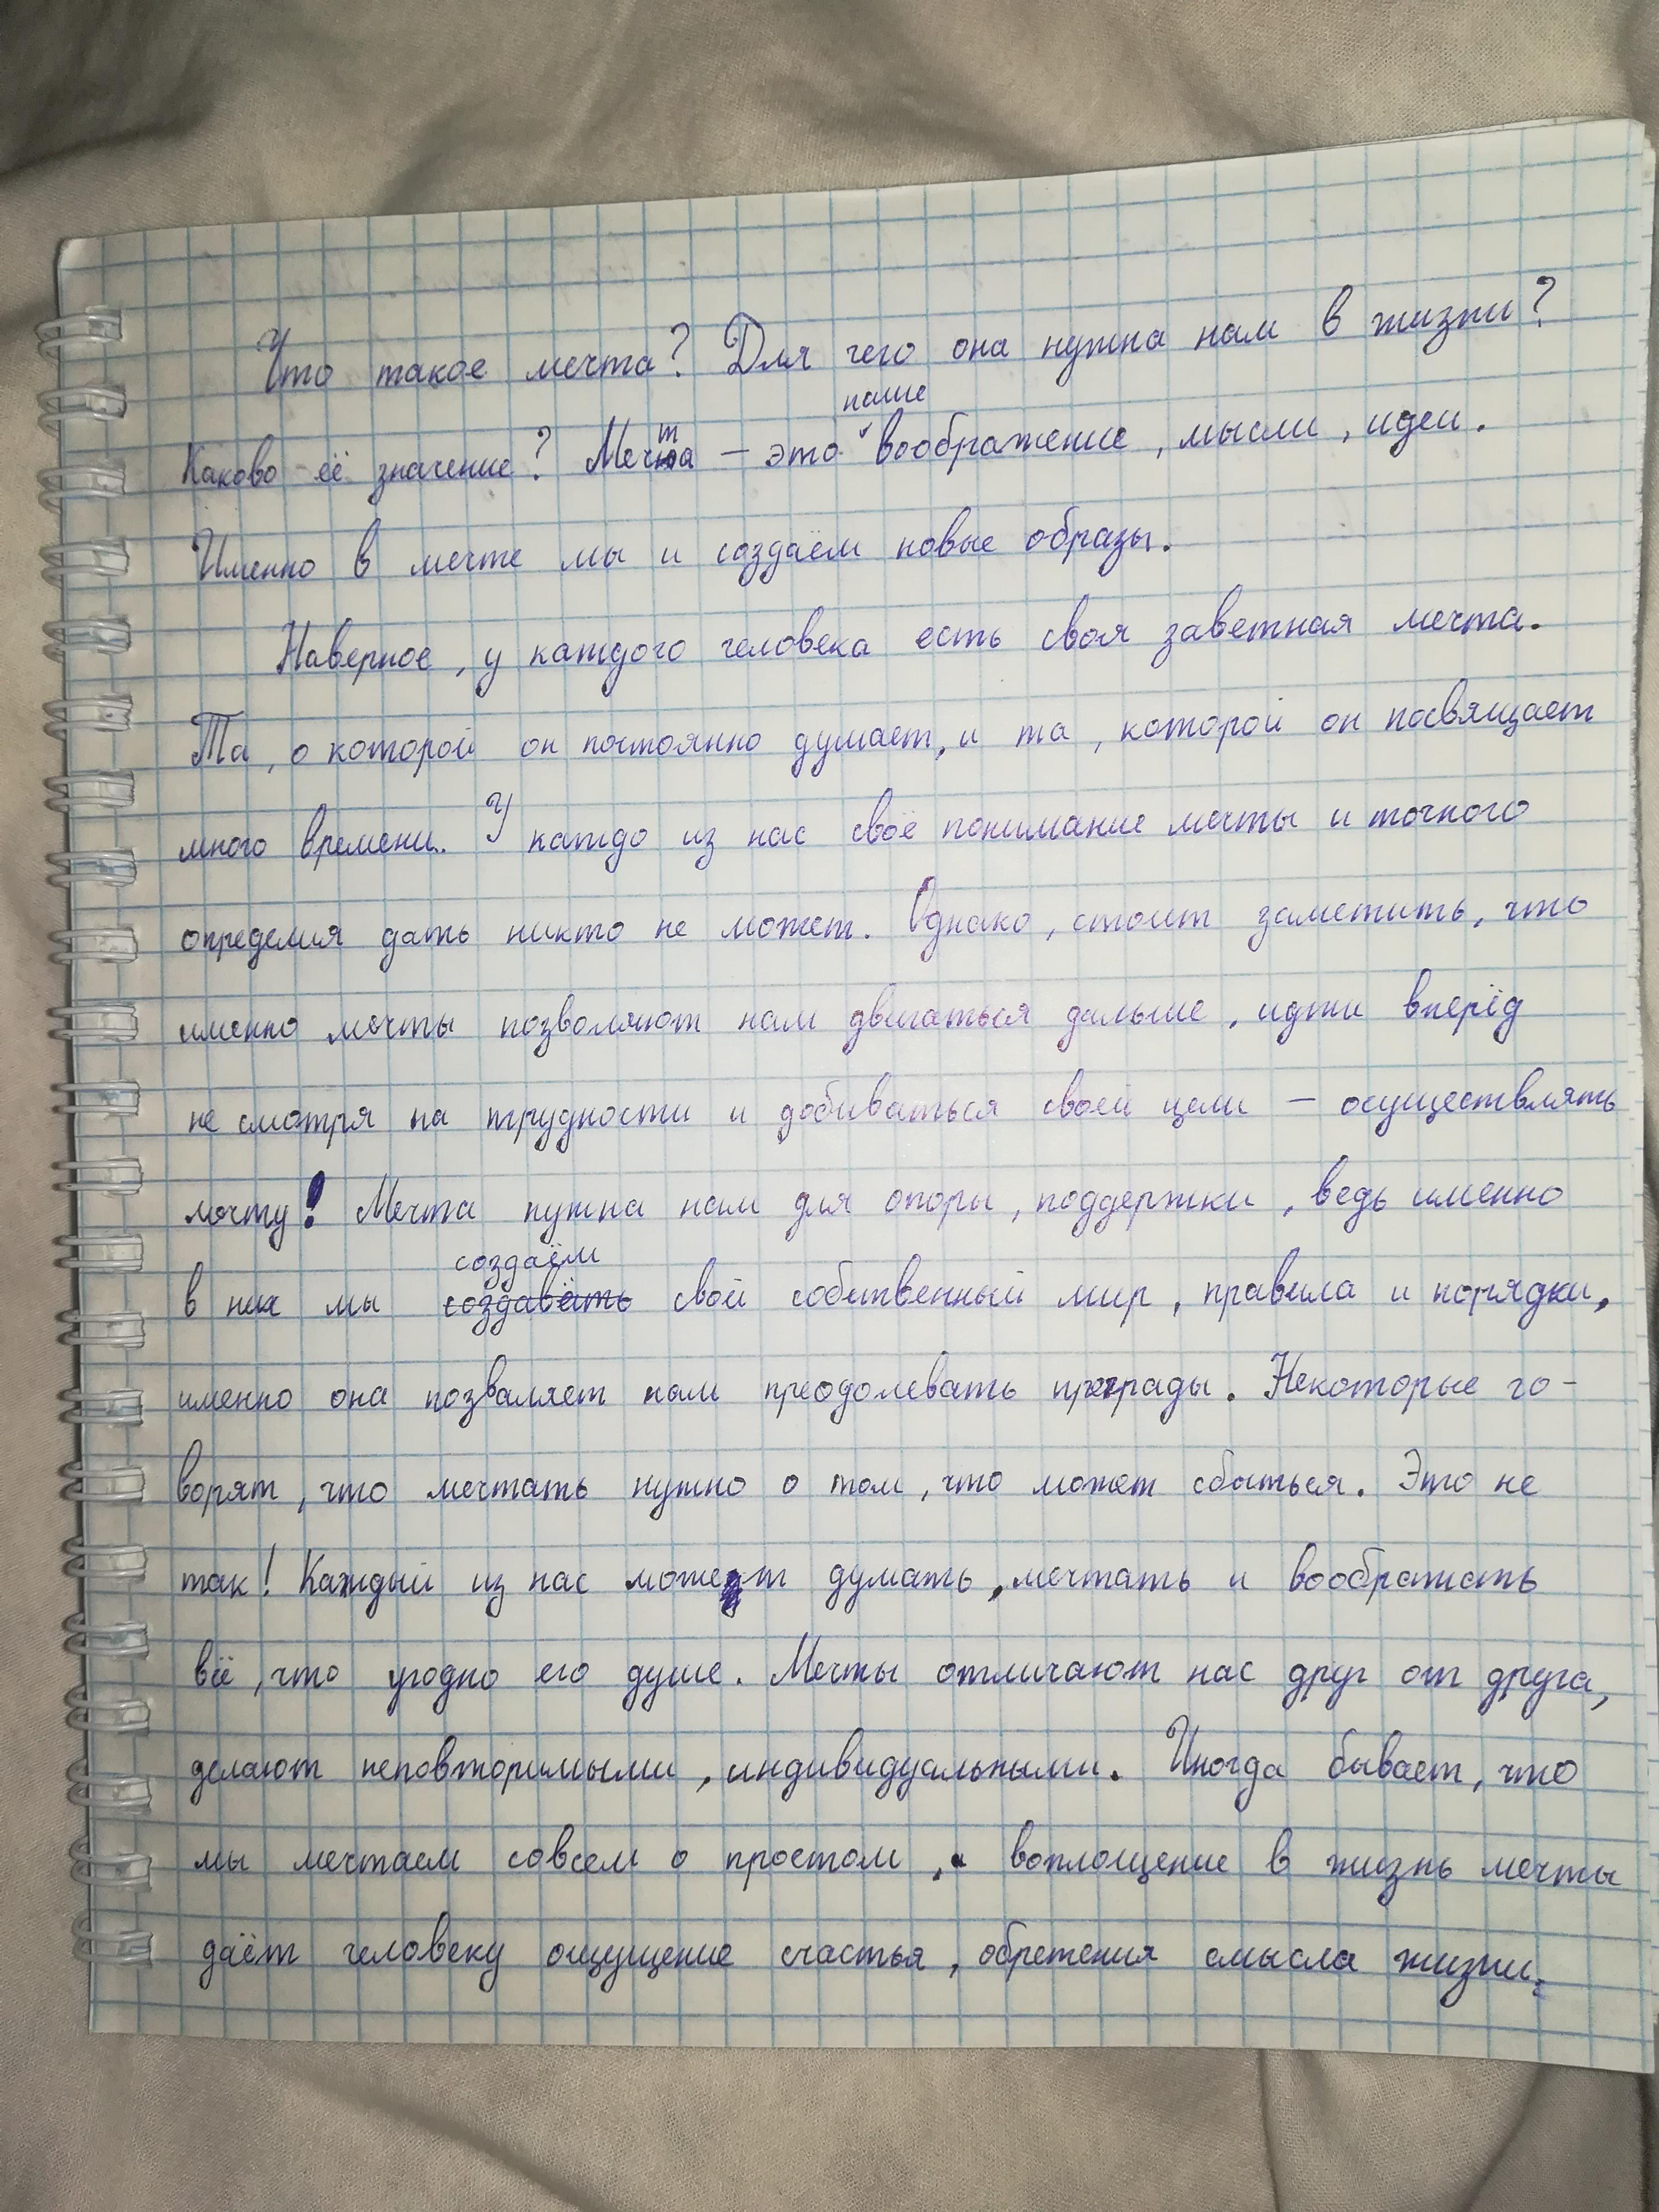 Что такое мечта? Для чего она нужна нам в жизни?
наше
Каково её значение? Мечта – это воображение, мысли, идеи.
Именно в мечте мы и создаём новые образы.
Наверное, у каждого человека есть своя заветная мечта.
Та, о которой он постоянно думает, и та, которой он посвящает
много времени. У каждо из нас своё понимание мечты и точного
определия дать никто не может. Однако, стоит заметить, что
именно мечты позволяют нам двигаться дальше, идти вперёд
не смотря на трудности и добиваться своей цели – осуществлять
мечту! Мечта нужна нам для опоры, поддержки, ведь именно
создаём
в них мы создавать свой собственный мир, правила и порядки,
именно она позваляет нам преодолевать преграды. Некоторые го-
ворят, что мечтать нужно о том, что может сбыться. Это не
так! Каждый из нас может думать, мечтать и воображать
всё, что угодно его душе. Мечты отличают нас друг от друга,
делают неповторимыми, индивидуальными. Иногда бывает, что
мы мечтаем совсем о простом, воплощение в жизнь мечты
даёт человеку ощущение счастья, обретения смысла жизни.